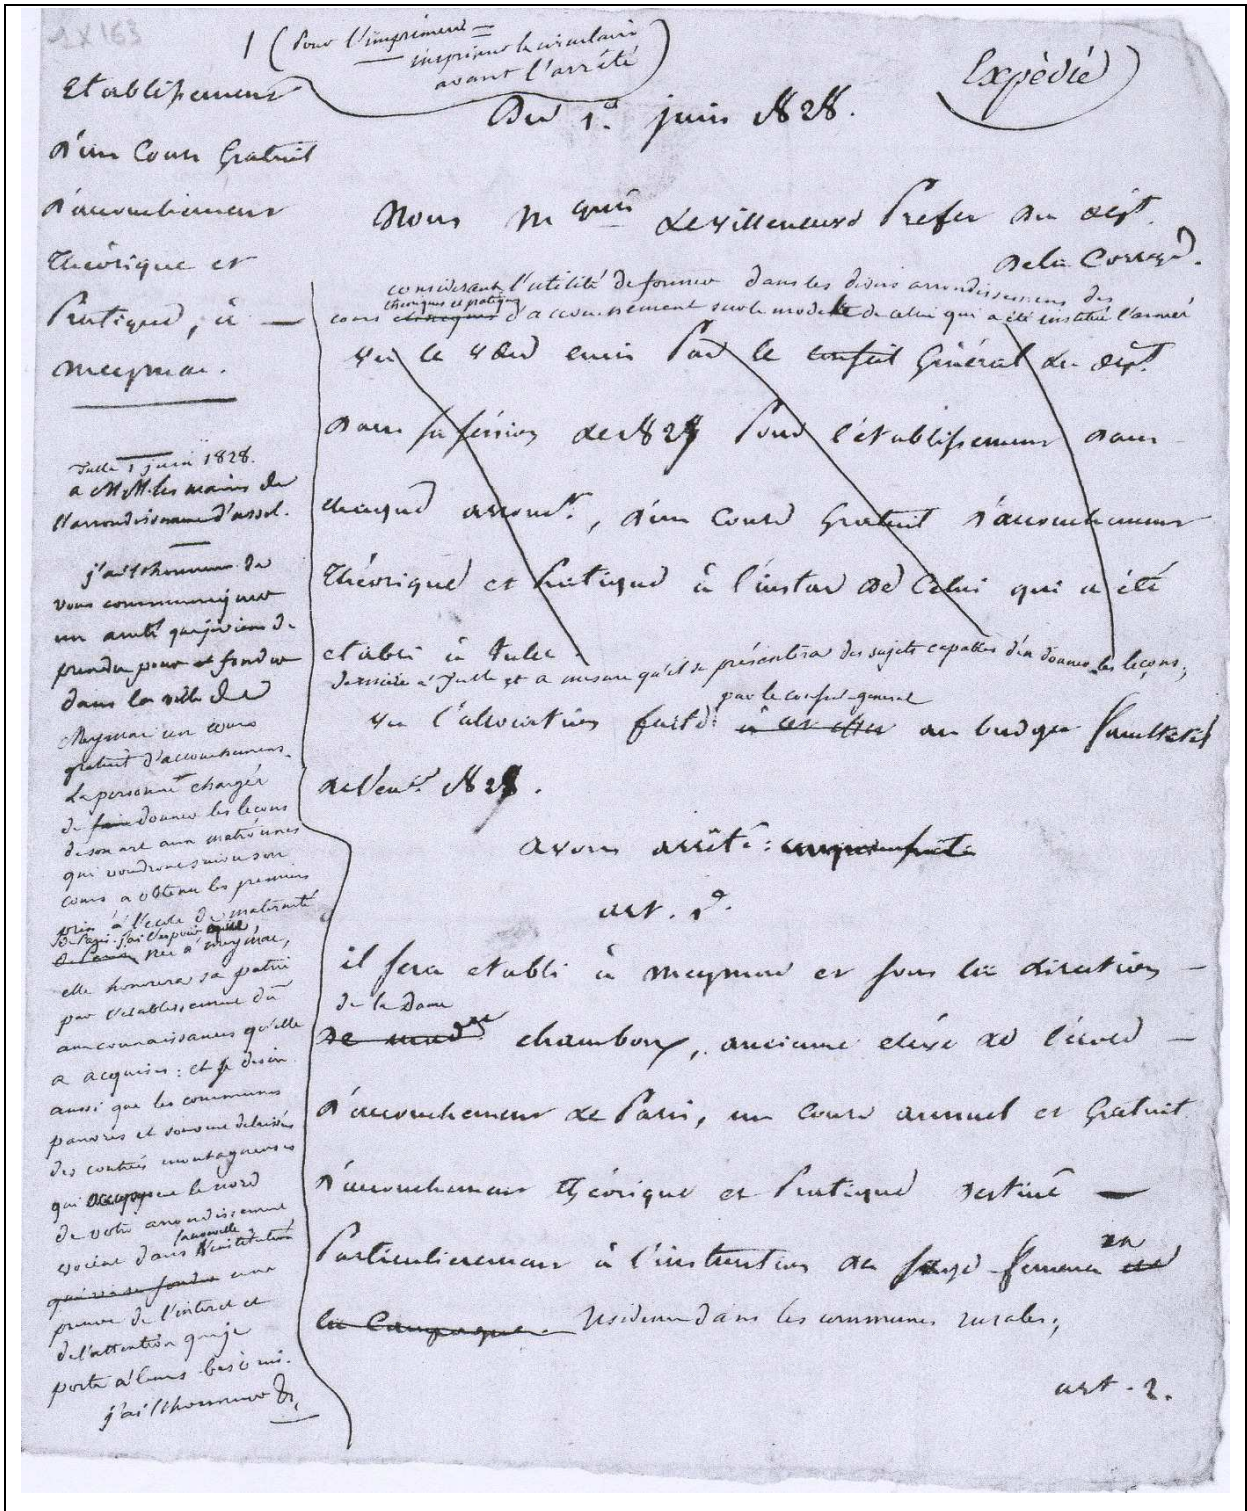 1 X 163
1 (Pour l'imprimeur =
imprimer la circulaire
avant l'arrêté)
Expédié
Etablissement
d'un Cours Gratuit
d'accouchement
théorique et
Pratique, à
meymac.
Du 1er juin 1828.
Nous mquis de villeneuve Prefet du dépt.
de la Correze.
considérant l'utilité de former dans les divers arrondissemens des
cours théoriques et pratiques d'accouchement sur le modèle de celui qui a été institué l'année
vu le vœu emis Par le conseil Général du dépt
dans sa session de 1827 Pour l'établissement dans
chaque arrondt., d'un Cours gratuit d'accouchement
théorique et Pratique à l'instar de Celui qui a été
etabli à Tulle.
dernière à Tulle, et a mesure qu'il se présentera des sujets capables d'en donner les leçons;
par le conseil-general
vu l'allocation faite au budget facultatif
de l'exce. 1828.
avons arrêté:
art. 1er.
il sera etabli à meymac et sous la direction
de la Dame
de made chambon, ancienne elève de l'école
d'accouchement de Paris, un cours annuel et Gratuit
d'accouchement théorique et Pratique destiné
Particulierement à l'instruction des sages-femmes
la Campagne. résidence dans les communes rurales;
art. 2.
Tulle 1 juin 1828.
a MM. les maires de
l'arrondissement d'ussel.
j'ai l'honneur de
vous communiquer
un arrêté que je viens de
prendre pour fonder
dans la ville de
Meymac un cours
gratuit d'accouchement.
La personne chargée
de faire donner les leçons
de son art aux matrônes
qui voudront suivre son
cours a obtenu les premiers
prix à l'école de maternité
de Paris. née à meymac,
elle honorera sa patrie
par l'établissement dû
aux connaissances qu'elle
a acquises: et je desire
aussi que les communes
pauvres et
des contrées montagneuses
qui occupent le nord
de votre arrondissement
voient dans l'institution
nouvelle
qui va se fonder une
preuve de l'interet et
de l'attention que je
porte à leurs besoins.
j'ai l'honneur &.